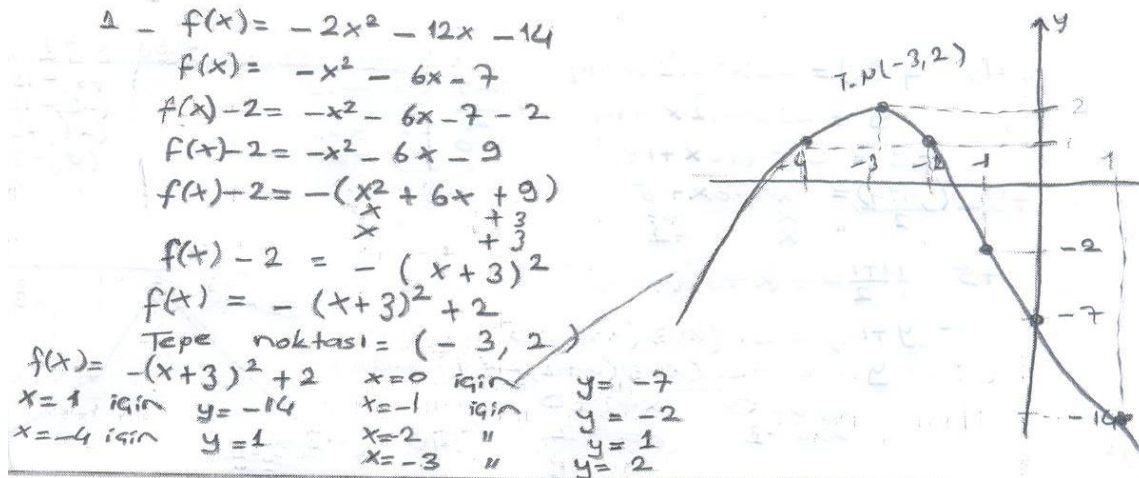 1 - f(x) = -2x² - 12x - 14
f(x) = -x² - 6x - 7
f(x) - 2 = -x² - 6x - 7 - 2
f(x) - 2 = -x² - 6x - 9
f(x) - 2 = -(x² + 6x + 9)
x + 3
x + 3
f(x) - 2 = - (x + 3)²
f(x) = - (x+3)² + 2
Tepe noktası = (-3, 2)
f(x) = -(x+3)² + 2 x=0 için y= -7
x=1 için y=-14 x=-1 için y= -2
x=-4 için y=1 x=-2 " y= 1
x=-3 " y= 2
y
T.N(-3,2)
2
1
-4 -3 -2 -1 1
-2
-7
-14